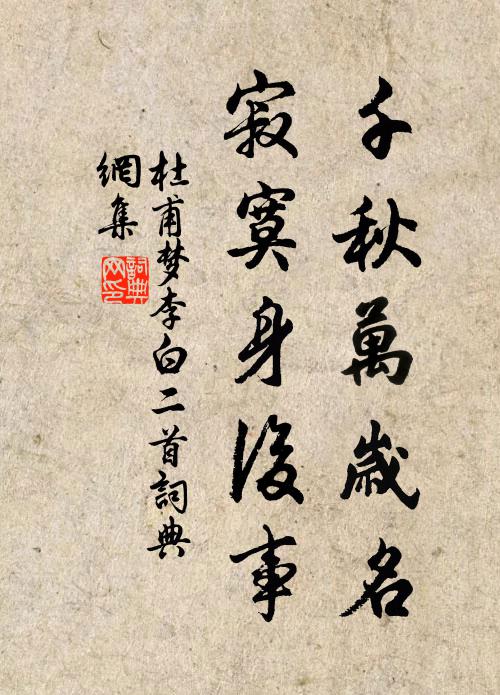 千秋萬歲名
寂寞身後事
杜甫梦李白二首詞典
網集
詞典
网印